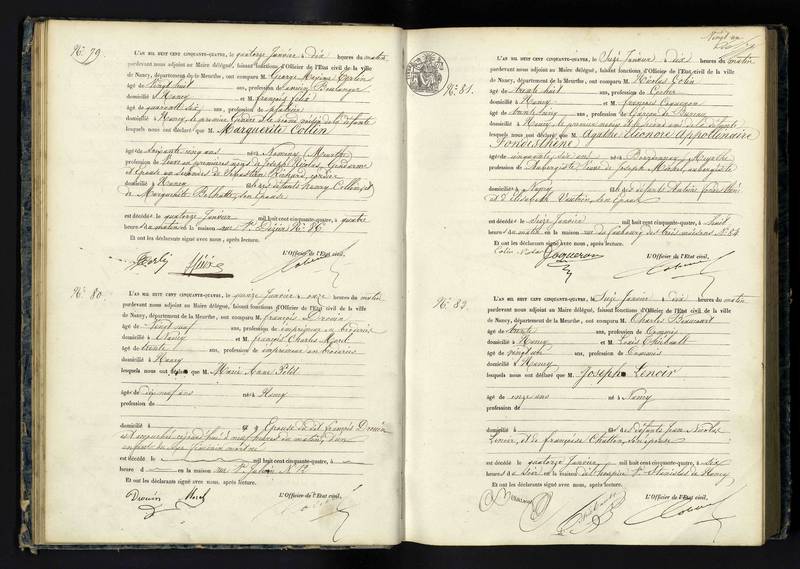 No. 79.
L'AN MIL HUIT CENT CINQUANTE-QUATRE, le quatorze Janvier à dix heures du matin
pardevant nous adjoint au Maire délégué, faisant fonctions d'Officier de l'État civil de la ville
de Nancy, département de la Meurthe, ont comparu M. George
âgé de vingt huit ans, profession de Boulanger
domicilié à Nancy et M. François
âgé de quarante six ans, profession de
domicilié à Nancy, le premier Gendre et le second voisin de la défunte
lesquels nous ont déclaré que M. Marguerite Collin
âgée de soixante cinq ans née à Nomeny (Meurthe)
profession de veuve en premières noces de Joseph Nicolas, Gendarme
et Épouse en secondes de Sébastien Richard, cordier
domiciliée à Nancy fille des défunts Henry Collin et
de Marguerite son épouse
est décédée le quatorze Janvier mil huit cent cinquante-quatre, à quatre
heures du matin en la maison rue St. Dizier No. 86
Et ont les déclarants signé avec nous, après lecture.
L'Officier de l'État civil,
No. 80.
L'AN MIL HUIT CENT CINQUANTE-QUATRE, le quinze Janvier à onze heures du matin
pardevant nous adjoint au Maire délégué, faisant fonctions d'Officier de l'État civil de la ville
de Nancy, département de la Meurthe, ont comparu M. François Drouin
âgé de vingt neuf ans, profession de imprimeur en broderies
domicilié à Nancy et M. François Charles Morel
âgé de trente ans, profession de imprimeur en broderies
domicilié à Nancy
lesquels nous ont déclaré que M. Marie Anne Petit
âgée de dix neuf ans née à Nancy
profession de
domicilié à Épouse du dit François Drouin
est accouchée cejourd'hui à neuf heures du matin d'un
enfant du sexe féminin mort né
est décédé le mil huit cent cinquante-quatre, à
heures en la maison rue St. Julien No. 12
Et ont les déclarants signé avec nous, après lecture.
Drouin Morel L'Officier de l'État civil,
Vingt un
No. 81.
L'AN MIL HUIT CENT CINQUANTE-QUATRE, le Seize Janvier à dix heures du matin
pardevant nous adjoint au Maire délégué, faisant fonctions d'Officier de l'État civil de la ville
de Nancy, département de la Meurthe, ont comparu M. Nicolas Colin
âgé de trente huit ans, profession de Cocher
domicilié à Nancy et M. François
âgé de trente cinq ans, profession de Garçon de Bureau
domicilié à Nancy, le premier
lesquels nous ont déclaré que M. Agathe Eléonore Appollinaire
âgée de cinquante six ans née à
profession de Aubergiste, Veuve de Joseph aubergiste
domiciliée à Nancy fille des défunts Antoine
et d'Elisabeth son épouse
est décédée le Seize Janvier mil huit cent cinquante-quatre, à huit
heures du matin en la maison rue du faubourg des trois maisons No. 84
Et ont les déclarants signé avec nous, après lecture.
Colin Nicolas L'Officier de l'État civil,
No. 82.
L'AN MIL HUIT CENT CINQUANTE-QUATRE, le Seize Janvier à dix heures du matin
pardevant nous adjoint au Maire délégué, faisant fonctions d'Officier de l'État civil de la ville
de Nancy, département de la Meurthe, ont comparu M. Charles
âgé de trente ans, profession de Commis
domicilié à Nancy et M. Louis Thiébault
âgé de vingt un ans, profession de Commis
domicilié à Nancy
lesquels nous ont déclaré que M. Joseph Lenoir
âgé de onze ans né à Nancy
profession de
domicilié à fils des défunts Jean Nicolas
Lenoir, et de Françoise son épouse
est décédé le quatorze Janvier mil huit cent cinquante-quatre, à six
heures du soir en la maison de l'hospice St. Stanislas de Nancy
Et ont les déclarants signé avec nous, après lecture.
L'Officier de l'État civil,